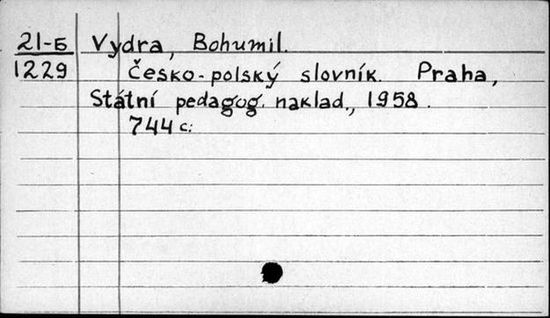 21-Б Vydra, Bohumil.
1229 Česko-polský slovník. Praha,
Státní pedagog. naklad., 1958.
744 с.